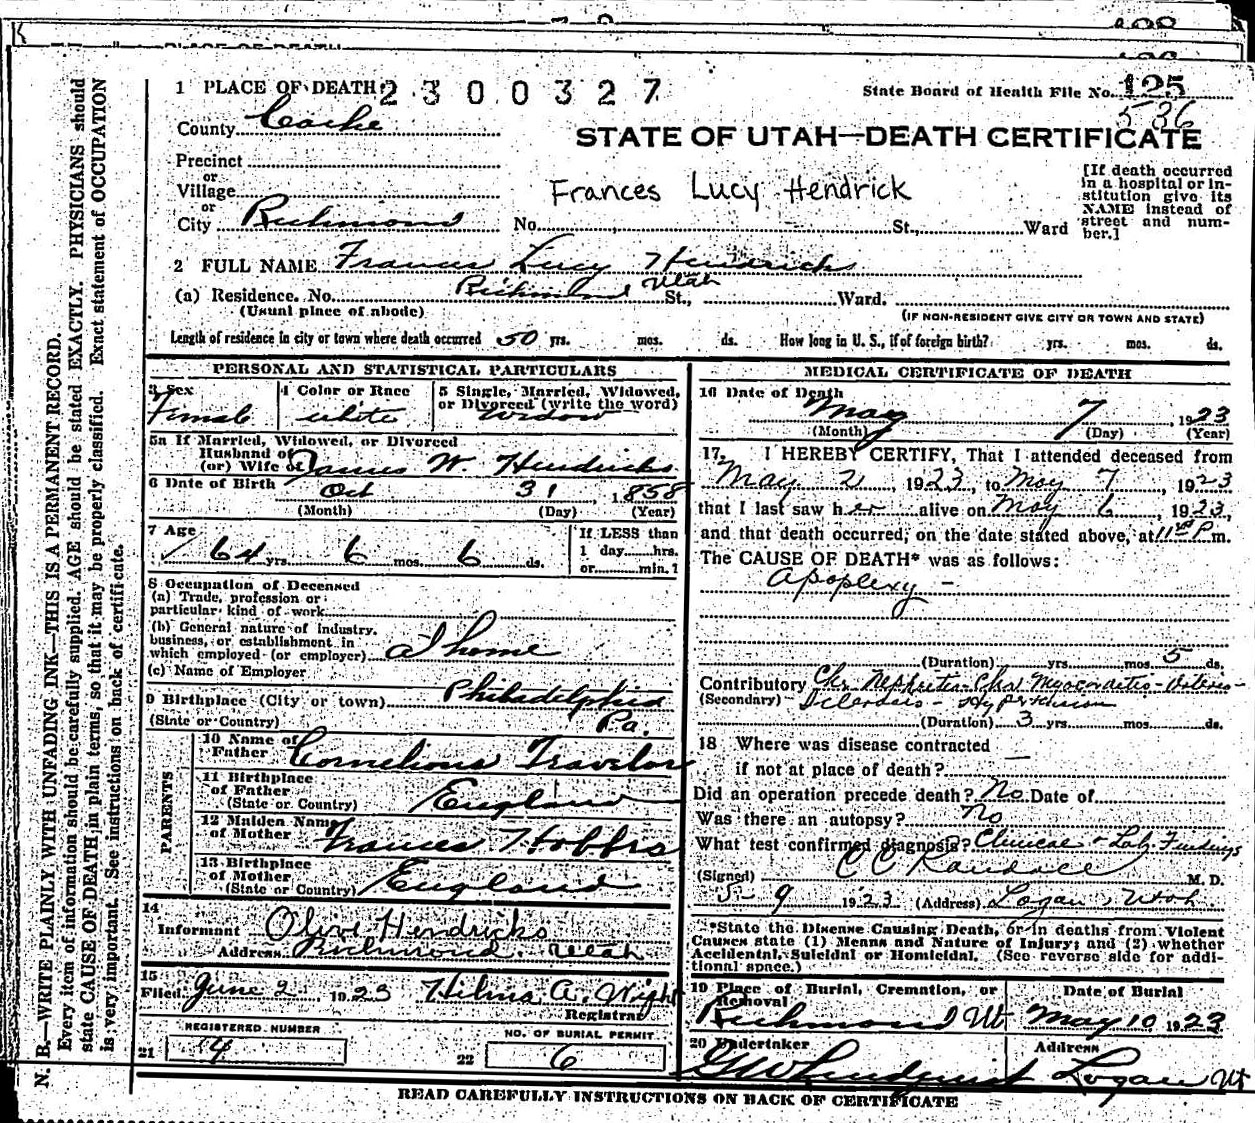 N. B.—WRITE PLAINLY WITH UNFADING INK—THIS IS A PERMANENT RECORD.
Every item of information should be carefully supplied. AGE should be stated EXACTLY. PHYSICIANS should
state CAUSE OF DEATH in plain terms, so that it may be properly classified. Exact statement of OCCUPATION
is very important. See instructions on back of certificate.
1 PLACE OF DEATH 2300327
State Board of Health File No. 125
536
County Cache
STATE OF UTAH—DEATH CERTIFICATE
Precinct
or
Village
or
City Richmond No. St., Ward
Frances Lucy Hendrick
[If death occurred
in a hospital or in-
stitution give its
NAME instead of
street and num-
ber.]
2 FULL NAME Frances Lucy Hendricks
(a) Residence. No. Richmond Utah St., Ward.
(Usual place of abode) (IF NON-RESIDENT GIVE CITY OR TOWN AND STATE)
Length of residence in city or town where death occurred 50 yrs. mos. ds. How long in U. S., if of foreign birth? yrs. mos. ds.
PERSONAL AND STATISTICAL PARTICULARS
3 Sex 4 Color or Race 5 Single, Married, Widowed,
or Divorced (write the word)
Female white widow
5a If Married, Widowed, or Divorced
Husband of
(or) Wife of James W. Hendricks
6 Date of Birth Oct 31, 1858
(Month) (Day) (Year)
7 Age
64 yrs. 6 mos. 6 ds.
If LESS than
1 day......hrs.
or......min.?
8 Occupation of Deceased
(a) Trade, profession or
particular kind of work
(b) General nature of industry,
business, or establishment in
which employed (or employer) at home
(c) Name of Employer
9 Birthplace (City or town) Philadelphia
(State or Country) Pa.
PARENTS
10 Name of
Father Cornelious
11 Birthplace
of Father
(State or Country) England
12 Maiden Name
of Mother Frances Hobbs
13 Birthplace
of Mother
(State or Country) England
14
Informant Olive Hendricks
Address Richmond, Utah
15
Filed June 2, 1923 Hilma A. Wight
Registrar
REGISTERED NUMBER NO. OF BURIAL PERMIT
21 4 22 6
MEDICAL CERTIFICATE OF DEATH
16 Date of Death
May 7, 1923
(Month) (Day) (Year)
17. I HEREBY CERTIFY, That I attended deceased from
May 2, 1923, to May 7, 1923
that I last saw her alive on May 6, 1923,
and that death occurred, on the date stated above, at 11 P m.
The CAUSE OF DEATH* was as follows:
Apoplexy -
(Duration) yrs. mos. 5 ds.
Contributory Chr Nephritis - Chr Myocarditis -
(Secondary) - Hypertension
(Duration) 3 yrs. mos. ds.
18 Where was disease contracted
if not at place of death? —
Did an operation precede death? No Date of
Was there an autopsy? No
What test confirmed diagnosis? Clinical & Lab. Findings
(Signed) C C Randall M. D.
5-9 1923 (Address) Logan, Utah
*State the Disease Causing Death, or in deaths from Violent
Causes state (1) Means and Nature of Injury; and (2) whether
Accidental, Suicidal or Homicidal. (See reverse side for addi-
tional space.)
19 Place of Burial, Cremation, or
Removal
Richmond Ut
Date of Burial
May 10 1923
20 Undertaker Address
Logan Ut
READ CAREFULLY INSTRUCTIONS ON BACK OF CERTIFICATE